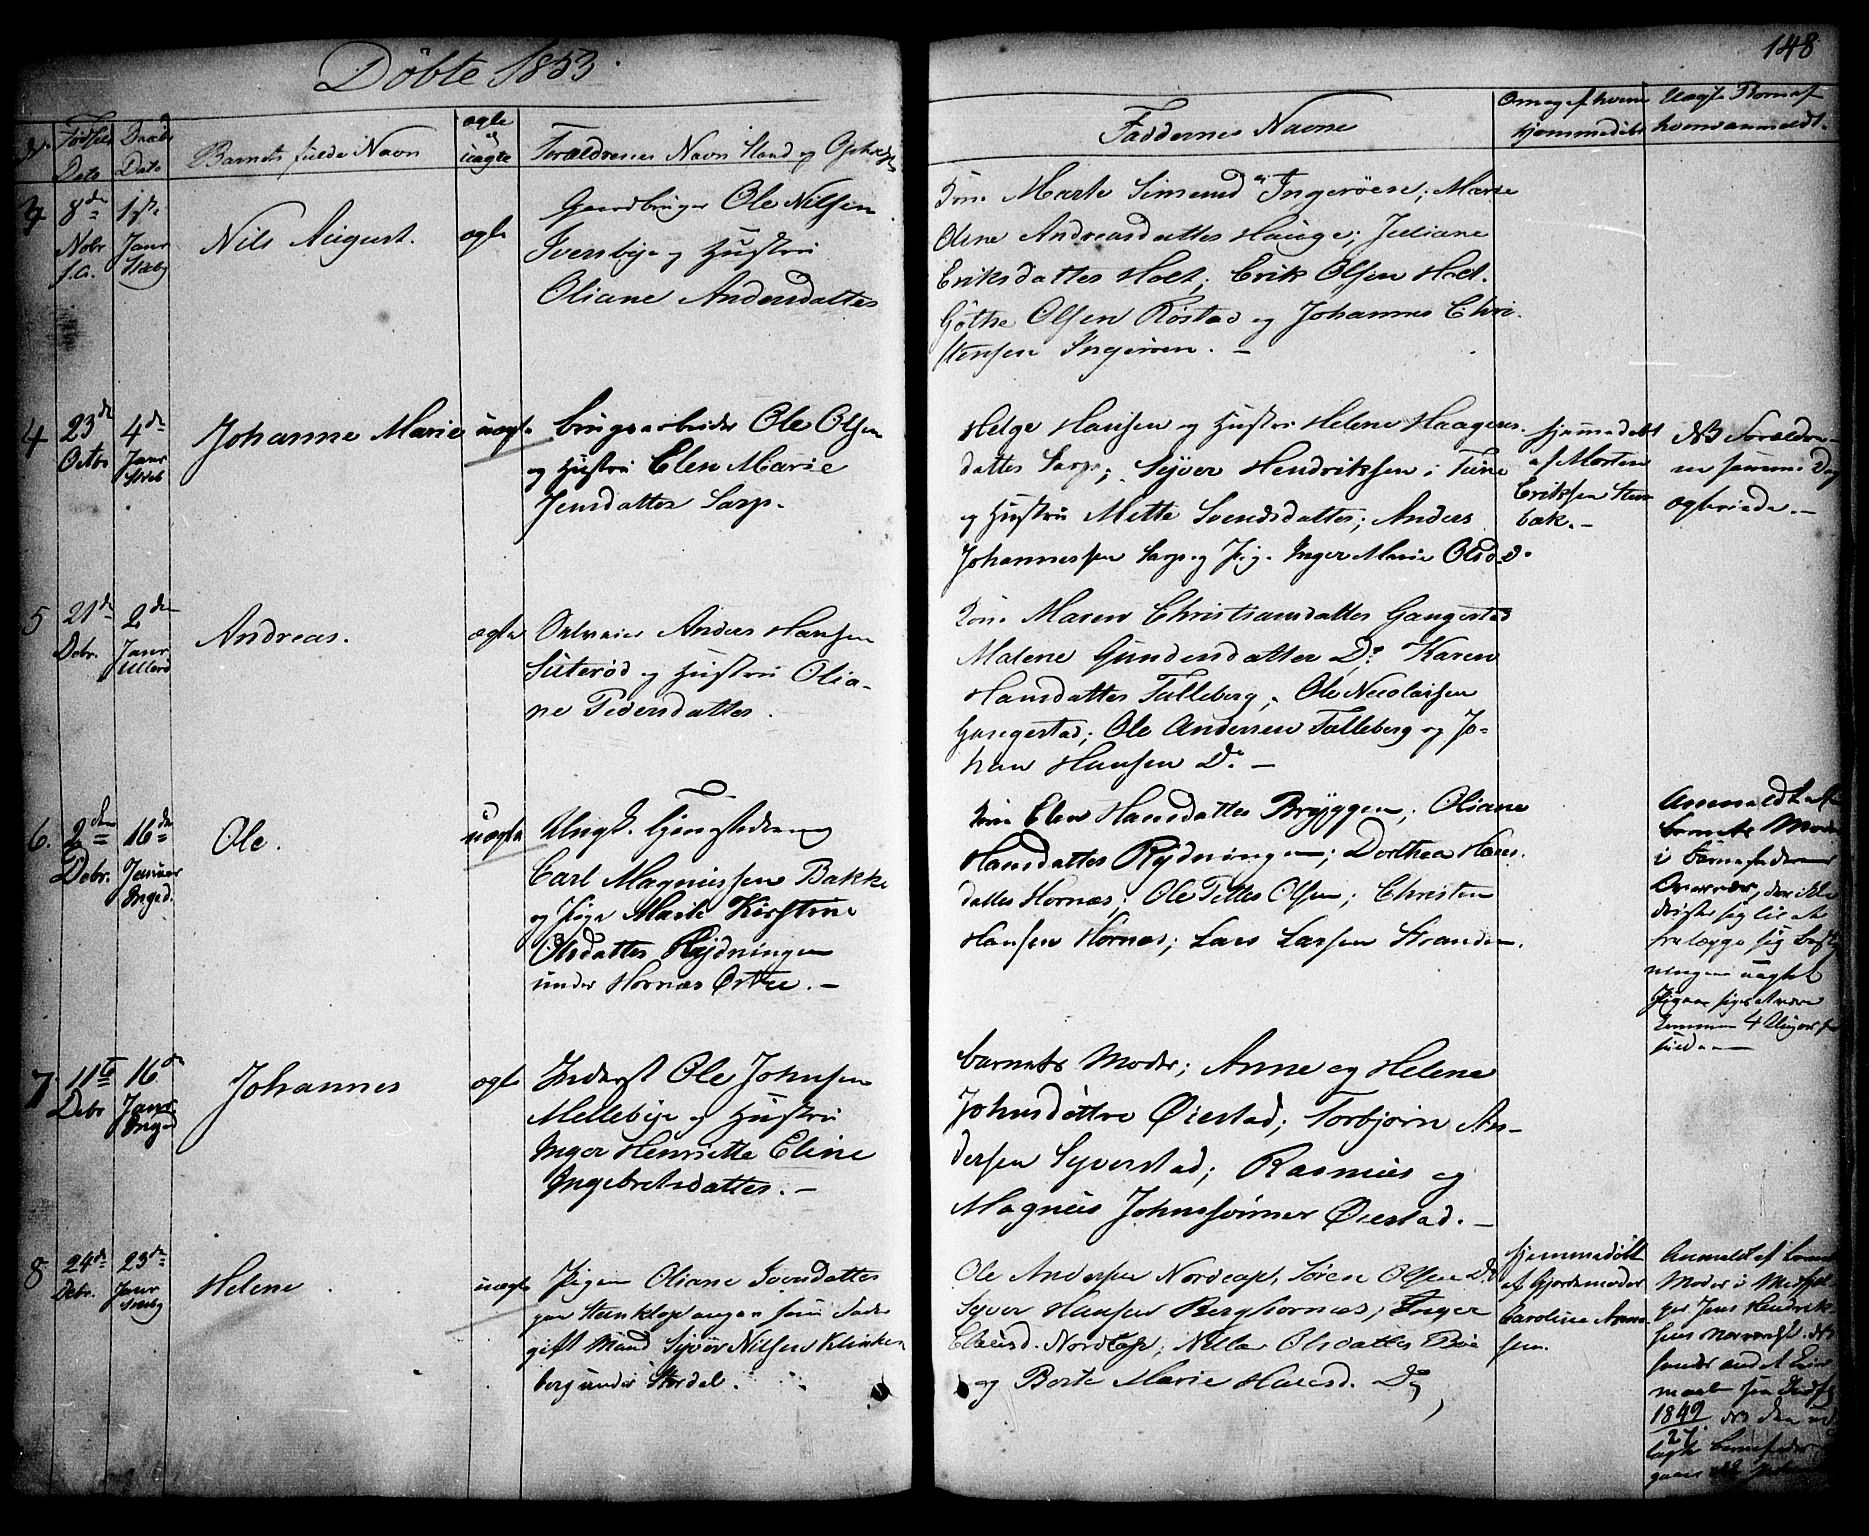 Döbte 1853.
148
No
Födsels
Dato
Daabs
Dato
Barnets fulde Navn
ægte
og
uægte
Forældrenes Navn Stand og
Faddernes Navne
Om og af hvem
hjemmedöbt
Uægte Børn af
hvem anmeldt.
3
8de
Novbr
f.A.
1ste
Janr
Nils August.
ægte
Gaardbruger Ole Nilsen
Iversbye og Hustru
Oliane Andersdatter
Kon. Marte Simensd Ingeröen; Marie
Oline Andreasdatter Hauge; Juliane
Eriksdatter Holt; Erik Olsen Holt.
Göthe Olsen Röstad og Johannes Chri-
stensen Ingeröen. –
4
23de
Octbr
4de
Janr
Johanne Marie
uægte
Brugsarbeider Ole Olsen
og Hustru Elen Marie
Jensdatter Sarp.
Helge Hansen og Hustru Helene Haagens-
datter Sarp; Syver Hendriksen i Tune
og Hustru Mette Svendsdatter; Anders
Johannessen Sarp og Pig. Inger Marie Olsd. D.
Hjemmedöbt
af Morten
Eriksen Sten
bæk. –
NB Foræld
ne samme Dag
ægteviede. –
5
21de
Debr.
2den
Janr
Ullerö
Andreas.
ægte
Anders Hansen
Suteröd og Hustru Olia-
ne Pedersdatter.
Kon. Maren Christiansdatter Gangestad
Malene Gundersdatter Do. Karen
Hansdatter Talleberg, Ole Nicolaisen
Gangestad; Ole Andersen Talleberg og Jo-
han Hansen Do. –
6.
2den
Debr.
16de
Januar
Inged.
Ole.
uægte
Ungk. Gjæstgiver
Carl Magnussen Bakke
og Pige Marte Kirstine
Olsdatter Rydningen
under Hornæs Östre. –
Kon. Elen Hansdatter Bryggen; Oliane
Hansdatter Rydningen; Dorthea Hans-
datter Hornæs; Ole Petter Olsen; Christen
Hansen Hornæs; Lars Larsen Stranden.
Anmeldt af
Barnets Moder
i Barnefaderens
Overvær, der ikke
lig at
sig
ningen uagtet
Pigen siges at være
4
7
11te
Debr
16de
Janr
Inged
Johannes
ægte
Inderst Ole Johnsen
Mellebye og Hustru
Inger Henriette Eline
Ingebretsdatter. –
Barnets Moder; Anne og Helene
Johnsdöttre Öiestad; Torbjörn An-
dersen Syverstad; Rasmus og
Magnus Johnssönner Öiestad. –
8
24de
Debr.
23de
Janr
Helene.
uægte
Pigen Oliane Svensdatter
paa Stenklop angav som Fader
gift Mand Syver Nilsen Klinken
berg under Stordal.
Ole Andersen Nordcap, Sören Olsen Do
Syver Hansen Berghornæs; Inger
Clausd. Nordcap; Nella Olsdatter Böe
og Berte Marie Hansd. Do
Hjemmedöbt
af Gjordemoder
Caroline Arne
sen.
Anmeldt af Barnets
Moder i
Jens Hendrik-
sens Nærværelse.
andet Leier
maal
1849
27
Barnefader